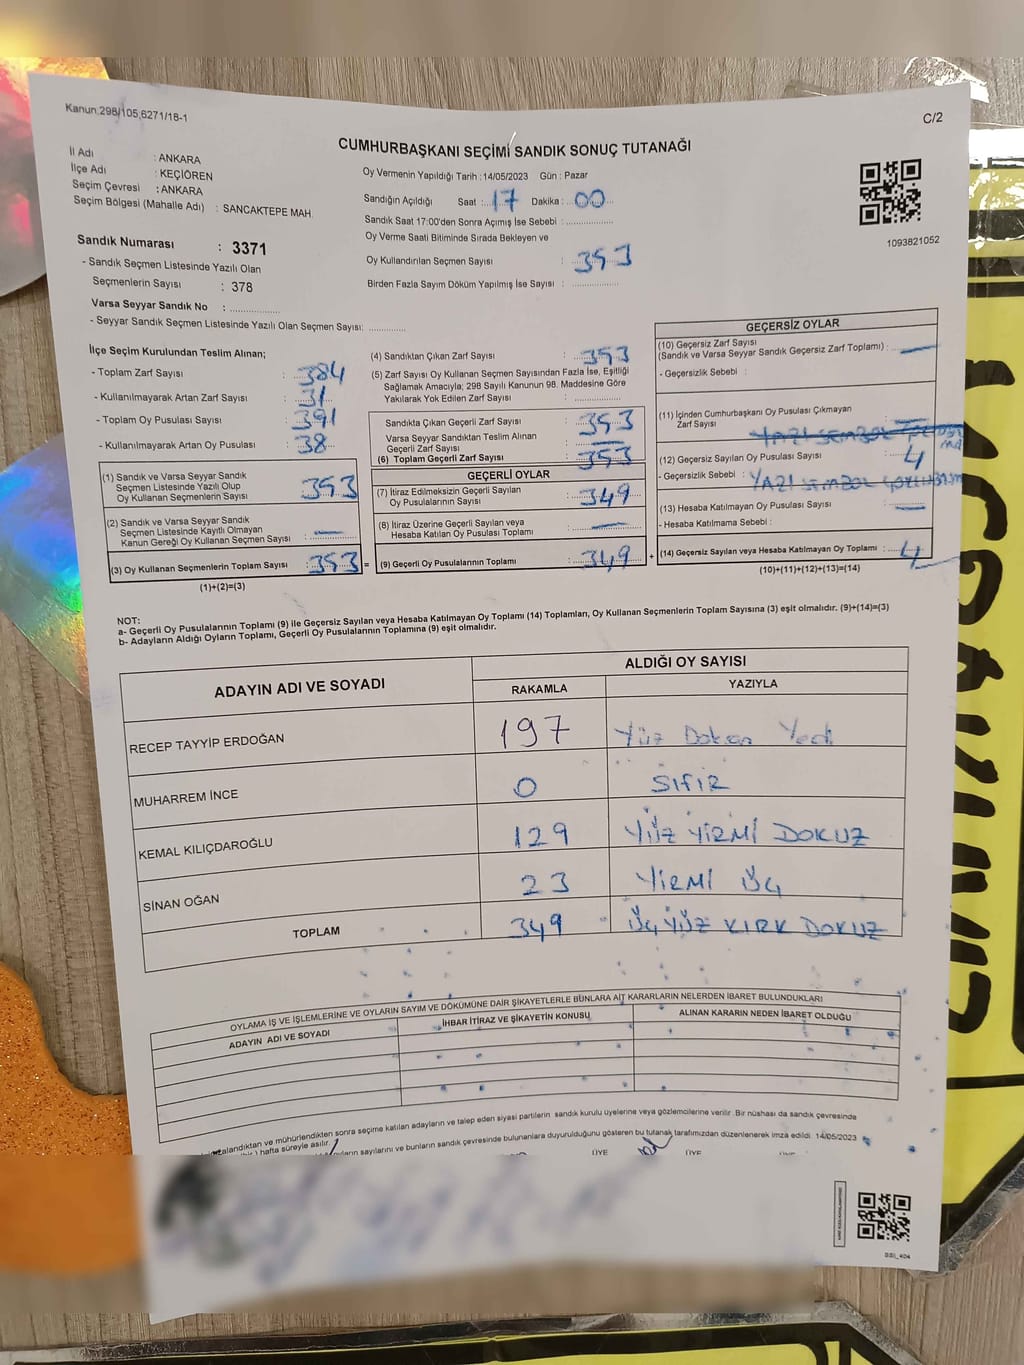 Kanun;298/105,6271/18-1
C/2
CUMHURBAŞKANI SEÇİMİ SANDIK SONUÇ TUTANAĞI
İl Adı : ANKARA
İlçe Adı : KEÇİÖREN
Seçim Çevresi : ANKARA
Seçim Bölgesi (Mahalle Adı) : SANCAKTEPE MAH.
Oy Vermenin Yapıldığı Tarih :14/05/2023 Gün : Pazar
Sandığın Açıldığı Saat : 17 Dakika : 00
Sandık Saat 17:00'den Sonra Açımış İse Sebebi :
Oy Verme Saati Bitiminde Sırada Bekleyen ve
Oy Kullandırılan Seçmen Sayısı : 353
Birden Fazla Sayım Döküm Yapılmış İse Sayısı :
1093821052
Sandık Numarası : 3371
- Sandık Seçmen Listesinde Yazılı Olan
Seçmenlerin Sayısı : 378
Varsa Seyyar Sandık No :
- Seyyar Sandık Seçmen Listesinde Yazılı Olan Seçmen Sayısı:
İlçe Seçim Kurulundan Teslim Alınan;
- Toplam Zarf Sayısı : 384
- Kullanılmayarak Artan Zarf Sayısı : 31
- Toplam Oy Pusulası Sayısı : 391
- Kullanılmayarak Artan Oy Pusulası : 38
(1) Sandık ve Varsa Seyyar Sandık
Seçmen Listesinde Yazılı Olup
Oy Kullanan Seçmenlerin Sayısı : 353
(2) Sandık ve Varsa Seyyar Sandık
Seçmen Listesinde Kayıtlı Olmayan
Kanun Gereği Oy Kullanan Seçmen Sayısı : —
(3) Oy Kullanan Seçmenlerin Toplam Sayısı : 353
(1)+(2)=(3)
(4) Sandıktan Çıkan Zarf Sayısı : 353
(5) Zarf Sayısı Oy Kullanan Seçmen Sayısından Fazla İse, Eşitliği
Sağlamak Amacıyla; 298 Sayılı Kanunun 98. Maddesine Göre
Yakılarak Yok Edilen Zarf Sayısı :
Sandıkta Çıkan Geçerli Zarf Sayısı : 353
Varsa Seyyar Sandıktan Teslim Alınan
Geçerli Zarf Sayısı : —
(6) Toplam Geçerli Zarf Sayısı : 353
GEÇERLİ OYLAR
(7) İtiraz Edilmeksizin Geçerli Sayılan
Oy Pusulalarının Sayısı : 349
(8) İtiraz Üzerine Geçerli Sayılan veya
Hesaba Katılan Oy Pusulası Toplamı : —
= (9) Geçerli Oy Pusulalarının Toplamı : 349
GEÇERSİZ OYLAR
(10) Geçersiz Zarf Sayısı
(Sandık ve Varsa Seyyar Sandık Geçersiz Zarf Toplamı) : —
- Geçersizlik Sebebi :
(11) İçinden Cumhurbaşkanı Oy Pusulası Çıkmayan
Zarf Sayısı : —
YAZI SEMBOL
(12) Geçersiz Sayılan Oy Pusulası Sayısı : 4
- Geçersizlik Sebebi : YAZI SEMBOL
(13) Hesaba Katılmayan Oy Pusulası Sayısı : —
- Hesaba Katılmama Sebebi :
+ (14) Geçersiz Sayılan veya Hesaba Katılmayan Oy Toplamı : 4
(10)+(11)+(12)+(13)=(14)
NOT:
a- Geçerli Oy Pusulalarının Toplamı (9) ile Geçersiz Sayılan veya Hesaba Katılmayan Oy Toplamı (14) Toplamları, Oy Kullanan Seçmenlerin Toplam Sayısına (3) eşit olmalıdır. (9)+(14)=(3)
b- Adayların Aldığı Oyların Toplamı, Geçerli Oy Pusulalarının Toplamına (9) eşit olmalıdır.
ADAYIN ADI VE SOYADI
ALDIĞI OY SAYISI
RAKAMLA YAZIYLA
RECEP TAYYİP ERDOĞAN 197 Yüz Doksan Yedi
MUHARREM İNCE 0 SIFIR
KEMAL KILIÇDAROĞLU 129 YÜZ YİRMİ DOKUZ
SİNAN OĞAN 23 YİRMİ ÜÇ
TOPLAM 349 ÜÇYÜZ KIRK DOKUZ
OYLAMA İŞ VE İŞLEMLERİNE VE OYLARIN SAYIM VE DÖKÜMÜNE DAİR ŞİKAYETLERLE BUNLARA AİT KARARLARIN NELERDEN İBARET BULUNDUKLARI
ADAYIN ADI VE SOYADI İHBAR İTİRAZ VE ŞİKAYETİN KONUSU ALINAN KARARIN NEDEN İBARET OLDUĞU
alandıktan ve mühürlendikten sonra seçime katılan adayların ve talep eden siyasi partilerin sandık kurulu üyelerine veya gözlemcilerine verilir. Bir nüshası da sandık çevresinde
) hafta süreyle asılır.
sayılarını ve bunların sandık çevresinde bulunanlara duyurulduğunu gösteren bu tutanak tarafımızdan düzenlenerek imza edildi. 14/05/2023
ÜYE ÜYE